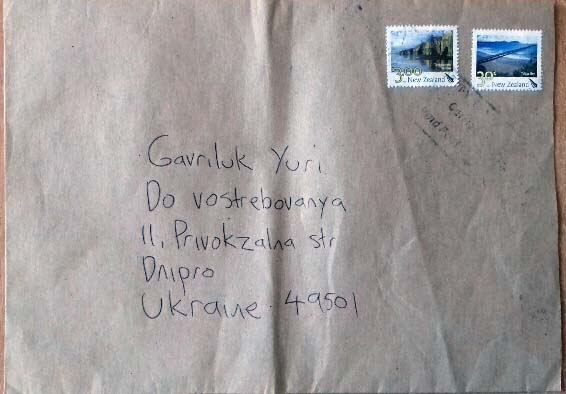 3.00
New Zealand
30c
New Zealand
Gavriluk Yuri
Do vostrebovanya
11, Privokzalna str
Dnipro
Ukraine 49501